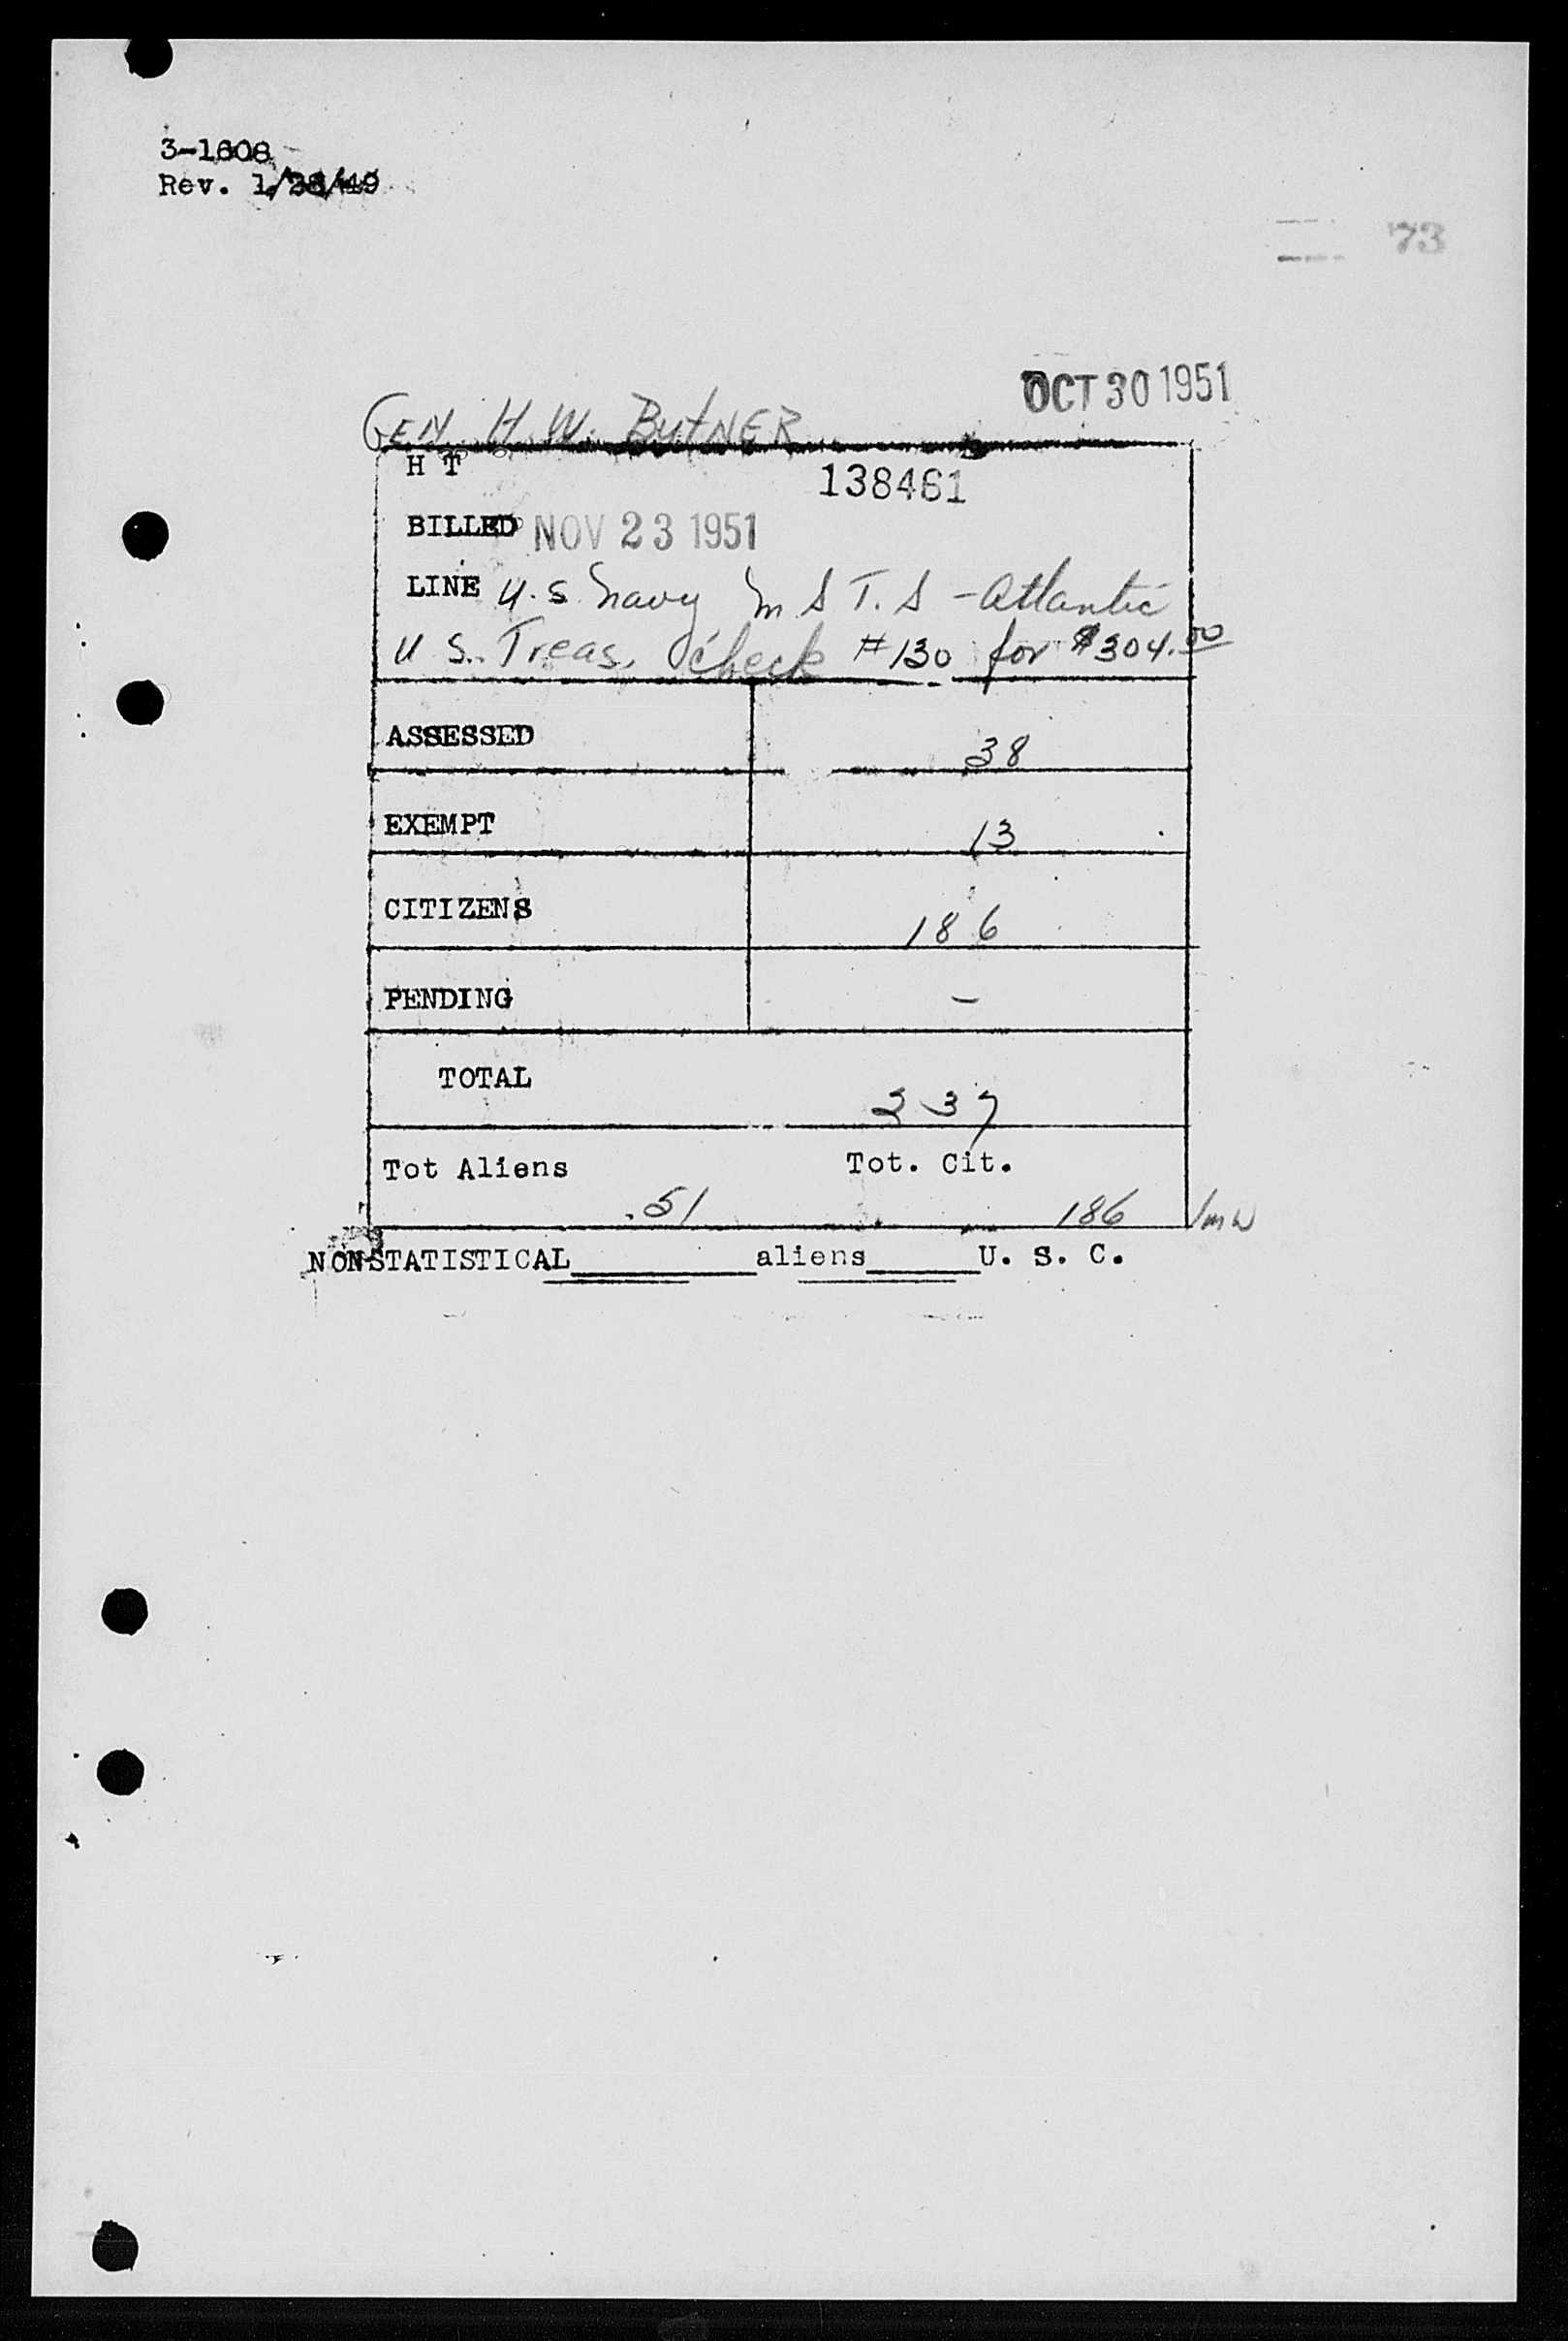 3-1608
Rev. 1/28/49
73
OCT 30 1951
GEN. H. W. BUTNER
H T
138461
BILLED NOV 23 1951
LINE U.S. Navy M S T.S - Atlantic
U S. Treas. Check #130 for $304.00
ASSESSED 38
EXEMPT 13
CITIZENS 186
PENDING -
TOTAL 237
Tot Aliens Tot. Cit.
51 186 /mw
NON-STATISTICAL______aliens______U. S. C.